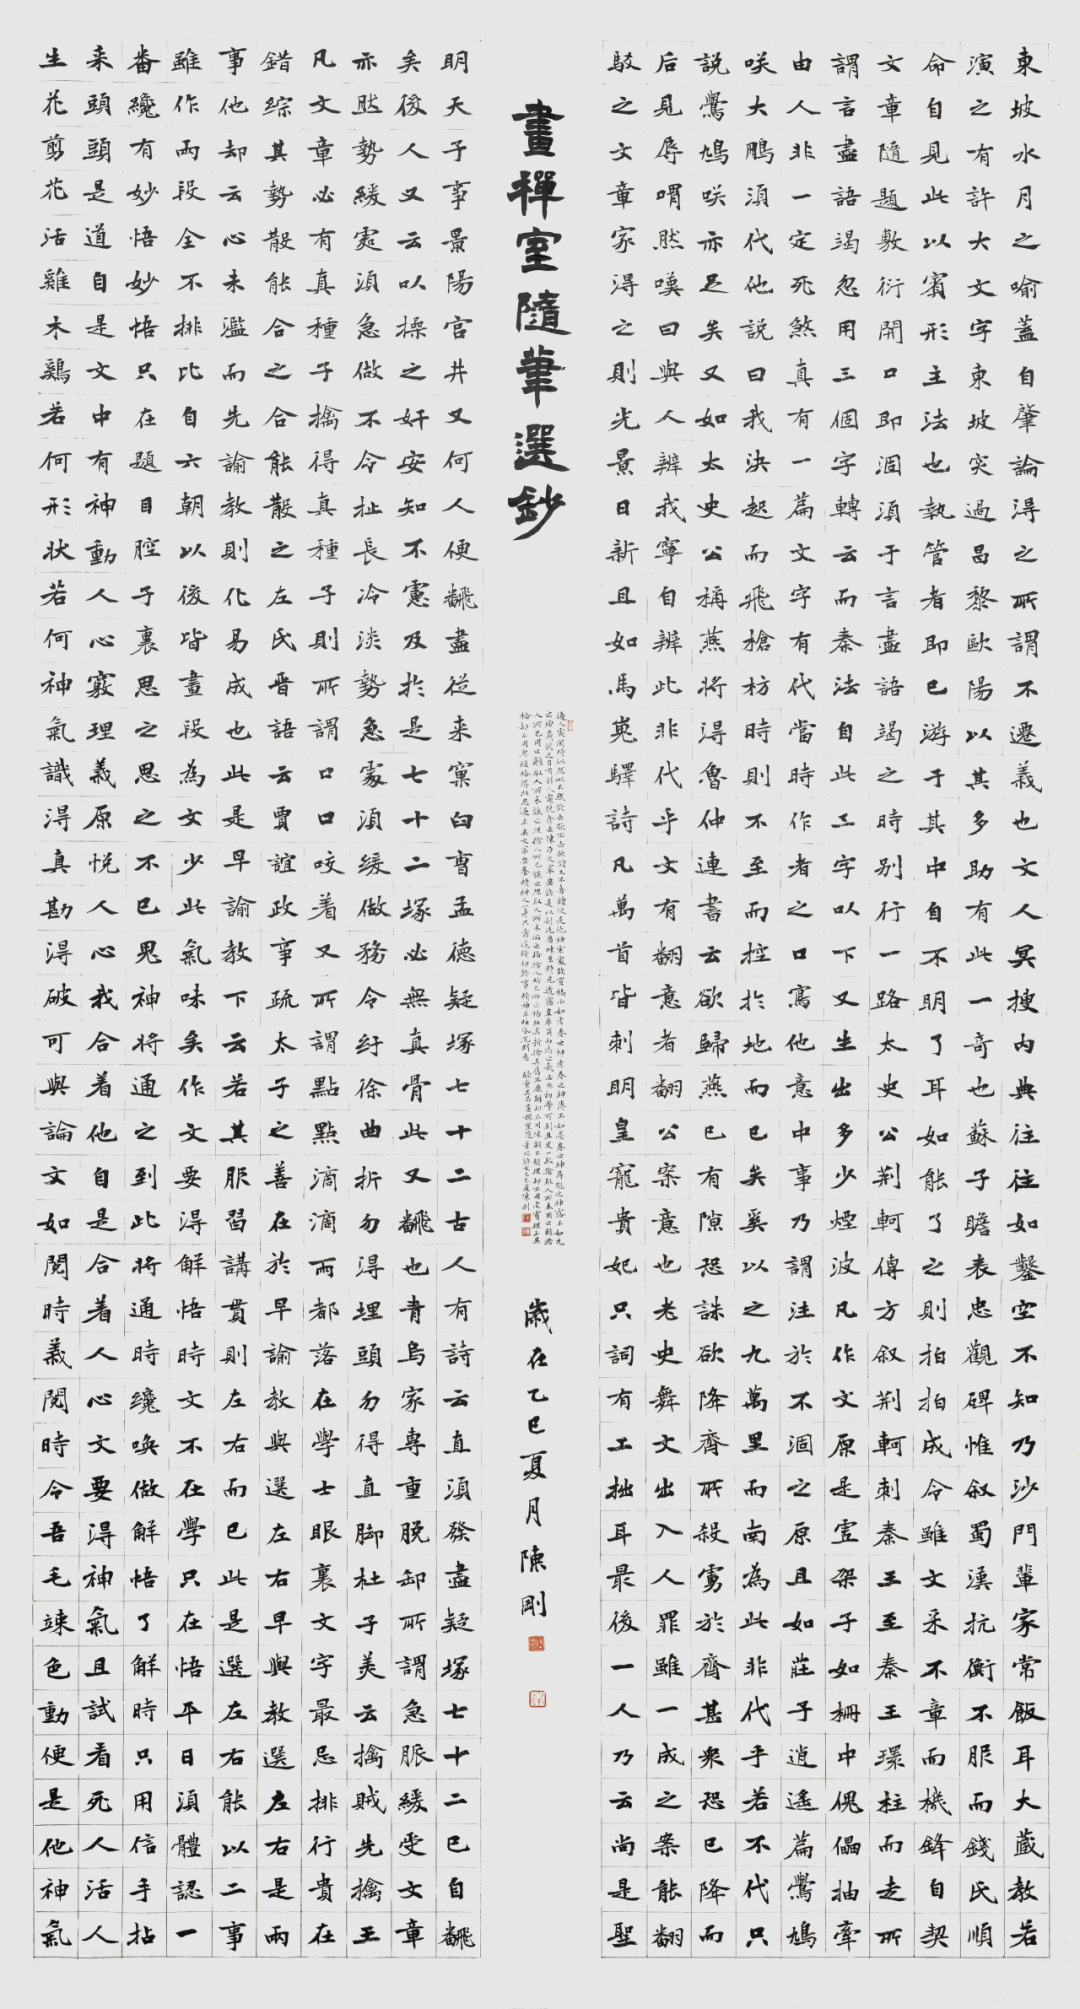 東坡水月之喻蓋自肇論得之所謂不遷義也文人冥搜内典往往如鑿空不知乃沙門輩家常飯耳大藏教若
演之有許大文字東坡突過昌黎歐陽以其多助有此一奇也蘇子瞻表忠觀碑惟叙蜀漢抗衡不服而錢氏順
命自見此以賓形主法也執管者即已游于其中自不明了耳如能了之則拍拍成令雖文采不章而機鋒自契
文章隨題敷衍開口即涸須于言盡語竭之時別行一路太史公荊軻傳方叙荊軻刺秦王至秦王環柱而走所
謂言盡語竭忽用三個字轉云而秦法自此三字以下又生出多少煙波凡作文原是虛架子如棚中傀儡抽牽
由人非一定死煞真有一篇文字有代當時作者之口寫他意中事乃謂注於不涸之原且如莊子逍遙篇鷽鳩
咲大鵬須代他説曰我決起而飛槍枋時則不至而控於地而已矣奚以之九萬里而南為此非代乎若不代只
説鷽鳩咲亦足矣又如太史公稱燕將得魯仲連書云欲歸燕已有隙恐誅欲降齊所殺虜於齊甚衆恐已降而
后見辱喟然嘆曰與人辨我寧自辨此非代乎文有翻意者翻公案意也老史舞文出入人罪雖一成之案能翻
駁之文章家得之則光景日新且如馬嵬驛詩凡萬首皆刺明皇寵貴妃只詞有工拙耳最後一人乃云尚是聖
畫禪室隨筆選鈔
歲在乙巳夏月陳剛
明天子事景陽宮井又何人便飜盡從来窠臼曹孟德疑塚七十二古人有詩云直須發盡疑塚七十二已自飜
矣後人又云以操之奸安知不慮及於是七十二塚必無真骨此又飜也青烏家專重脫卸所謂急脈緩受文章
亦然勢緩處須急做不令扯長冷淡勢急處須緩做務令紆徐曲折勿得埋頭勿得直脚杜子美云擒賊先擒王
凡文章必有真種子擒得真種子則所謂口口咬着又所謂點點滴滴雨都落在學士眼裏文字最忌排行貴在
錯綜其勢散能合之合能散之左氏晉語云賈誼政事疏太子之善在於早諭教與選左右早與教選左右是兩
事他却云心未濫而先諭教則化易成也此是早諭教下云若其服習講貫則左右而已此是選左右能以二事
雖作兩段全不排比自六朝以後皆畫段為文少此氣味矣作文要得解悟時文不在學只在悟平日須體認一
番纔有妙悟妙悟只在題目腔子裏思之思之不已鬼神將通之到此將通時纔喚做解悟了解時只用信手拈
来頭頭是道自是文中有神動人心竅理義原悅人心我合着他自是合着人心文要得神氣且試看死人活人
生花剪花活雞木鷄若何形狀若何神氣識得真勘得破可與論文如閱時義閱時令吾毛竦色動便是他神氣